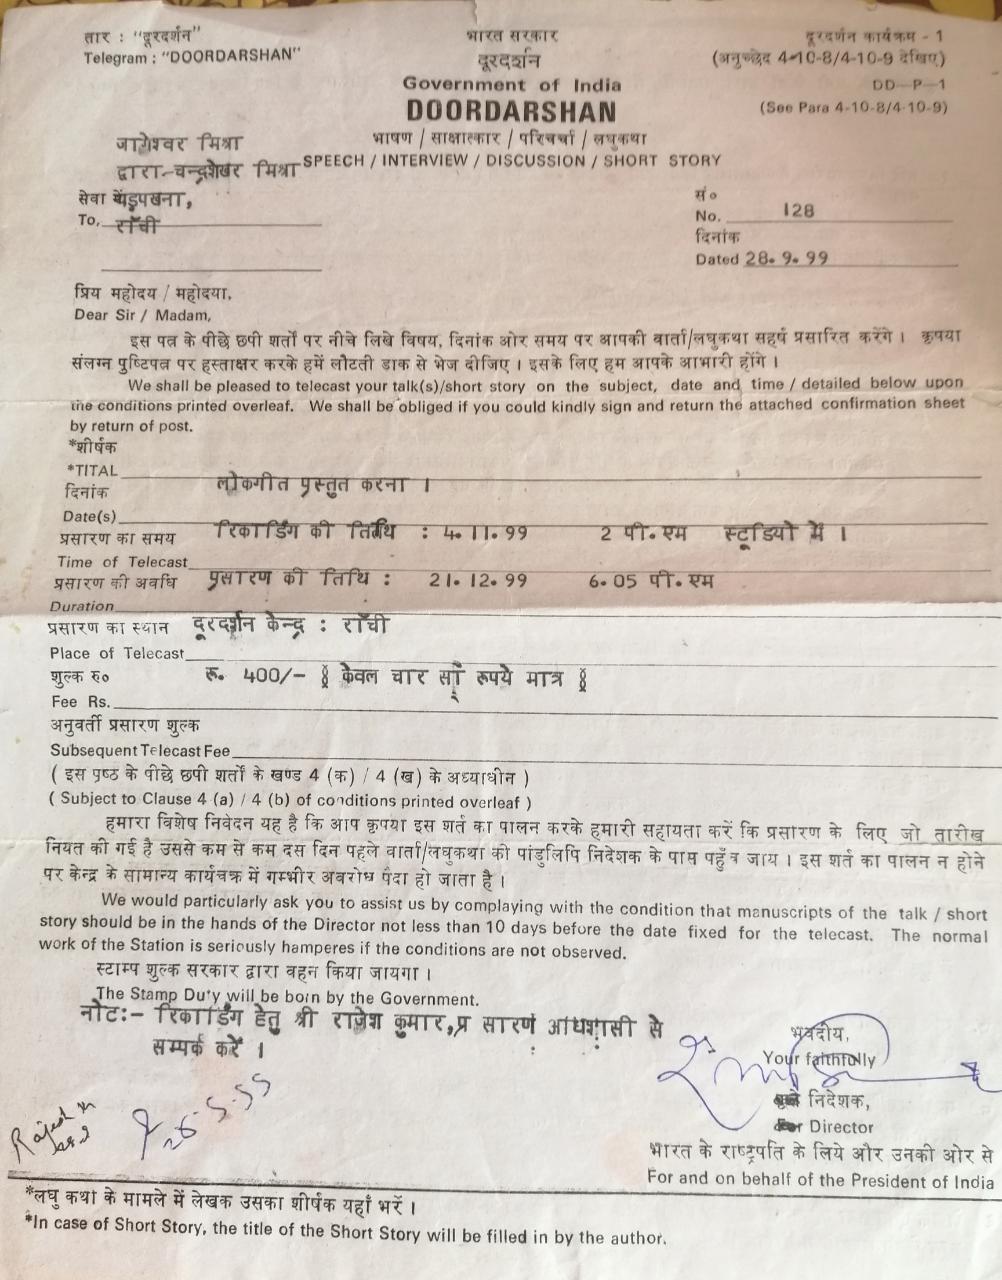 तार : "दूरदर्शन"
Telegram : "DOORDARSHAN"
भारत सरकार
दूरदर्शन
Government of India
DOORDARSHAN
भाषण / साक्षात्कार / परिचर्चा / लघुकथा
SPEECH / INTERVIEW / DISCUSSION / SHORT STORY
दूरदर्शन कार्यक्रम - 1
(अनुच्छेद 4-10-8/4-10-9 देखिए)
DD-P-1
(See Para 4-10-8/4-10-9)
जागेश्वर मिश्रा
द्वारा-चन्द्रशेखर मिश्रा
सेवा में
To,
राँची
सं०
No. 128
दिनांक
Dated 28.9.99
प्रिय महोदय / महोदया,
Dear Sir / Madam,
इस पत्र के पीछे छपी शर्तों पर नीचे लिखे विषय, दिनांक ओर समय पर आपकी वार्ता/लघुकथा सहर्ष प्रसारित करेंगे । कृपया
संलग्न पुष्टिपत्र पर हस्ताक्षर करके हमें लौटती डाक से भेज दीजिए । इसके लिए हम आपके आभारी होंगे ।
We shall be pleased to telecast your talk(s)/short story on the subject, date and time / detailed below upon
the conditions printed overleaf. We shall be obliged if you could kindly sign and return the attached confirmation sheet
by return of post.
*शीर्षक
*TITAL लोकगीत प्रस्तुत करना ।
दिनांक
Date(s) रिकार्डिंग की तिथि : 4.11.99 2 पी.एम स्टूडियो में ।
प्रसारण का समय
Time of Telecast
प्रसारण की अवधि प्रसारण की तिथि : 21.12.99 6.05 पी.एम
Duration
प्रसारण का स्थान दूरदर्शन केन्द्र : राँची
Place of Telecast
शुल्क रु० रू. 400/- केवल चार सौ रूपये मात्र
Fee Rs.
अनुवर्ती प्रसारण शुल्क
Subsequent Telecast Fee
( इस पृष्ठ के पीछे छपी शर्तों के खण्ड 4 (क) / 4 (ख) के अध्याधीन )
( Subject to Clause 4 (a) / 4 (b) of conditions printed overleaf )
हमारा विशेष निवेदन यह है कि आप कृपया इस शर्त का पालन करके हमारी सहायता करें कि प्रसारण के लिए जो तारीख
नियत की गई है उससे कम से कम दस दिन पहले वार्ता/लघुकथा की पांडुलिपि निदेशक के पास पहुँच जाय । इस शर्त का पालन न होने
पर केन्द्र के सामान्य कार्यचक्र में गम्भीर अवरोध पैदा हो जाता है ।
We would particularly ask you to assist us by complaying with the condition that manuscripts of the talk / short
story should be in the hands of the Director not less than 10 days before the date fixed for the telecast. The normal
work of the Station is seriously hamperes if the conditions are not observed.
स्टाम्प शुल्क सरकार द्वारा वहन किया जायगा ।
The Stamp Duty will be born by the Government.
नोट:- रिकार्डिंग हेतु श्री राजेश कुमार,प्र सारण अधिशासी से
सम्पर्क करें ।
भवदीय,
Your faithfully
निदेशक,
For Director
भारत के राष्ट्रपति के लिये और उनकी ओर से
For and on behalf of the President of India
*लघु कथा के मामले में लेखक उसका शीर्षक यहाँ भरें ।
*In case of Short Story, the title of the Short Story will be filled in by the author.